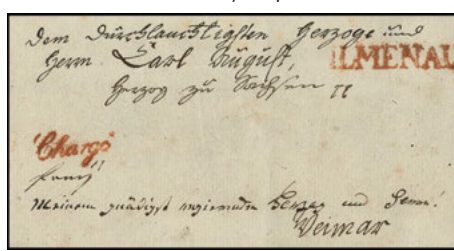 Dem Durchlauchtigsten Herzoge und
Herrn Carl August,
ILMENAU
Herzog zu Sachsen
Chargé
franco
Meinem gnädigst regierenden Herzog und Herrn!
Weimar